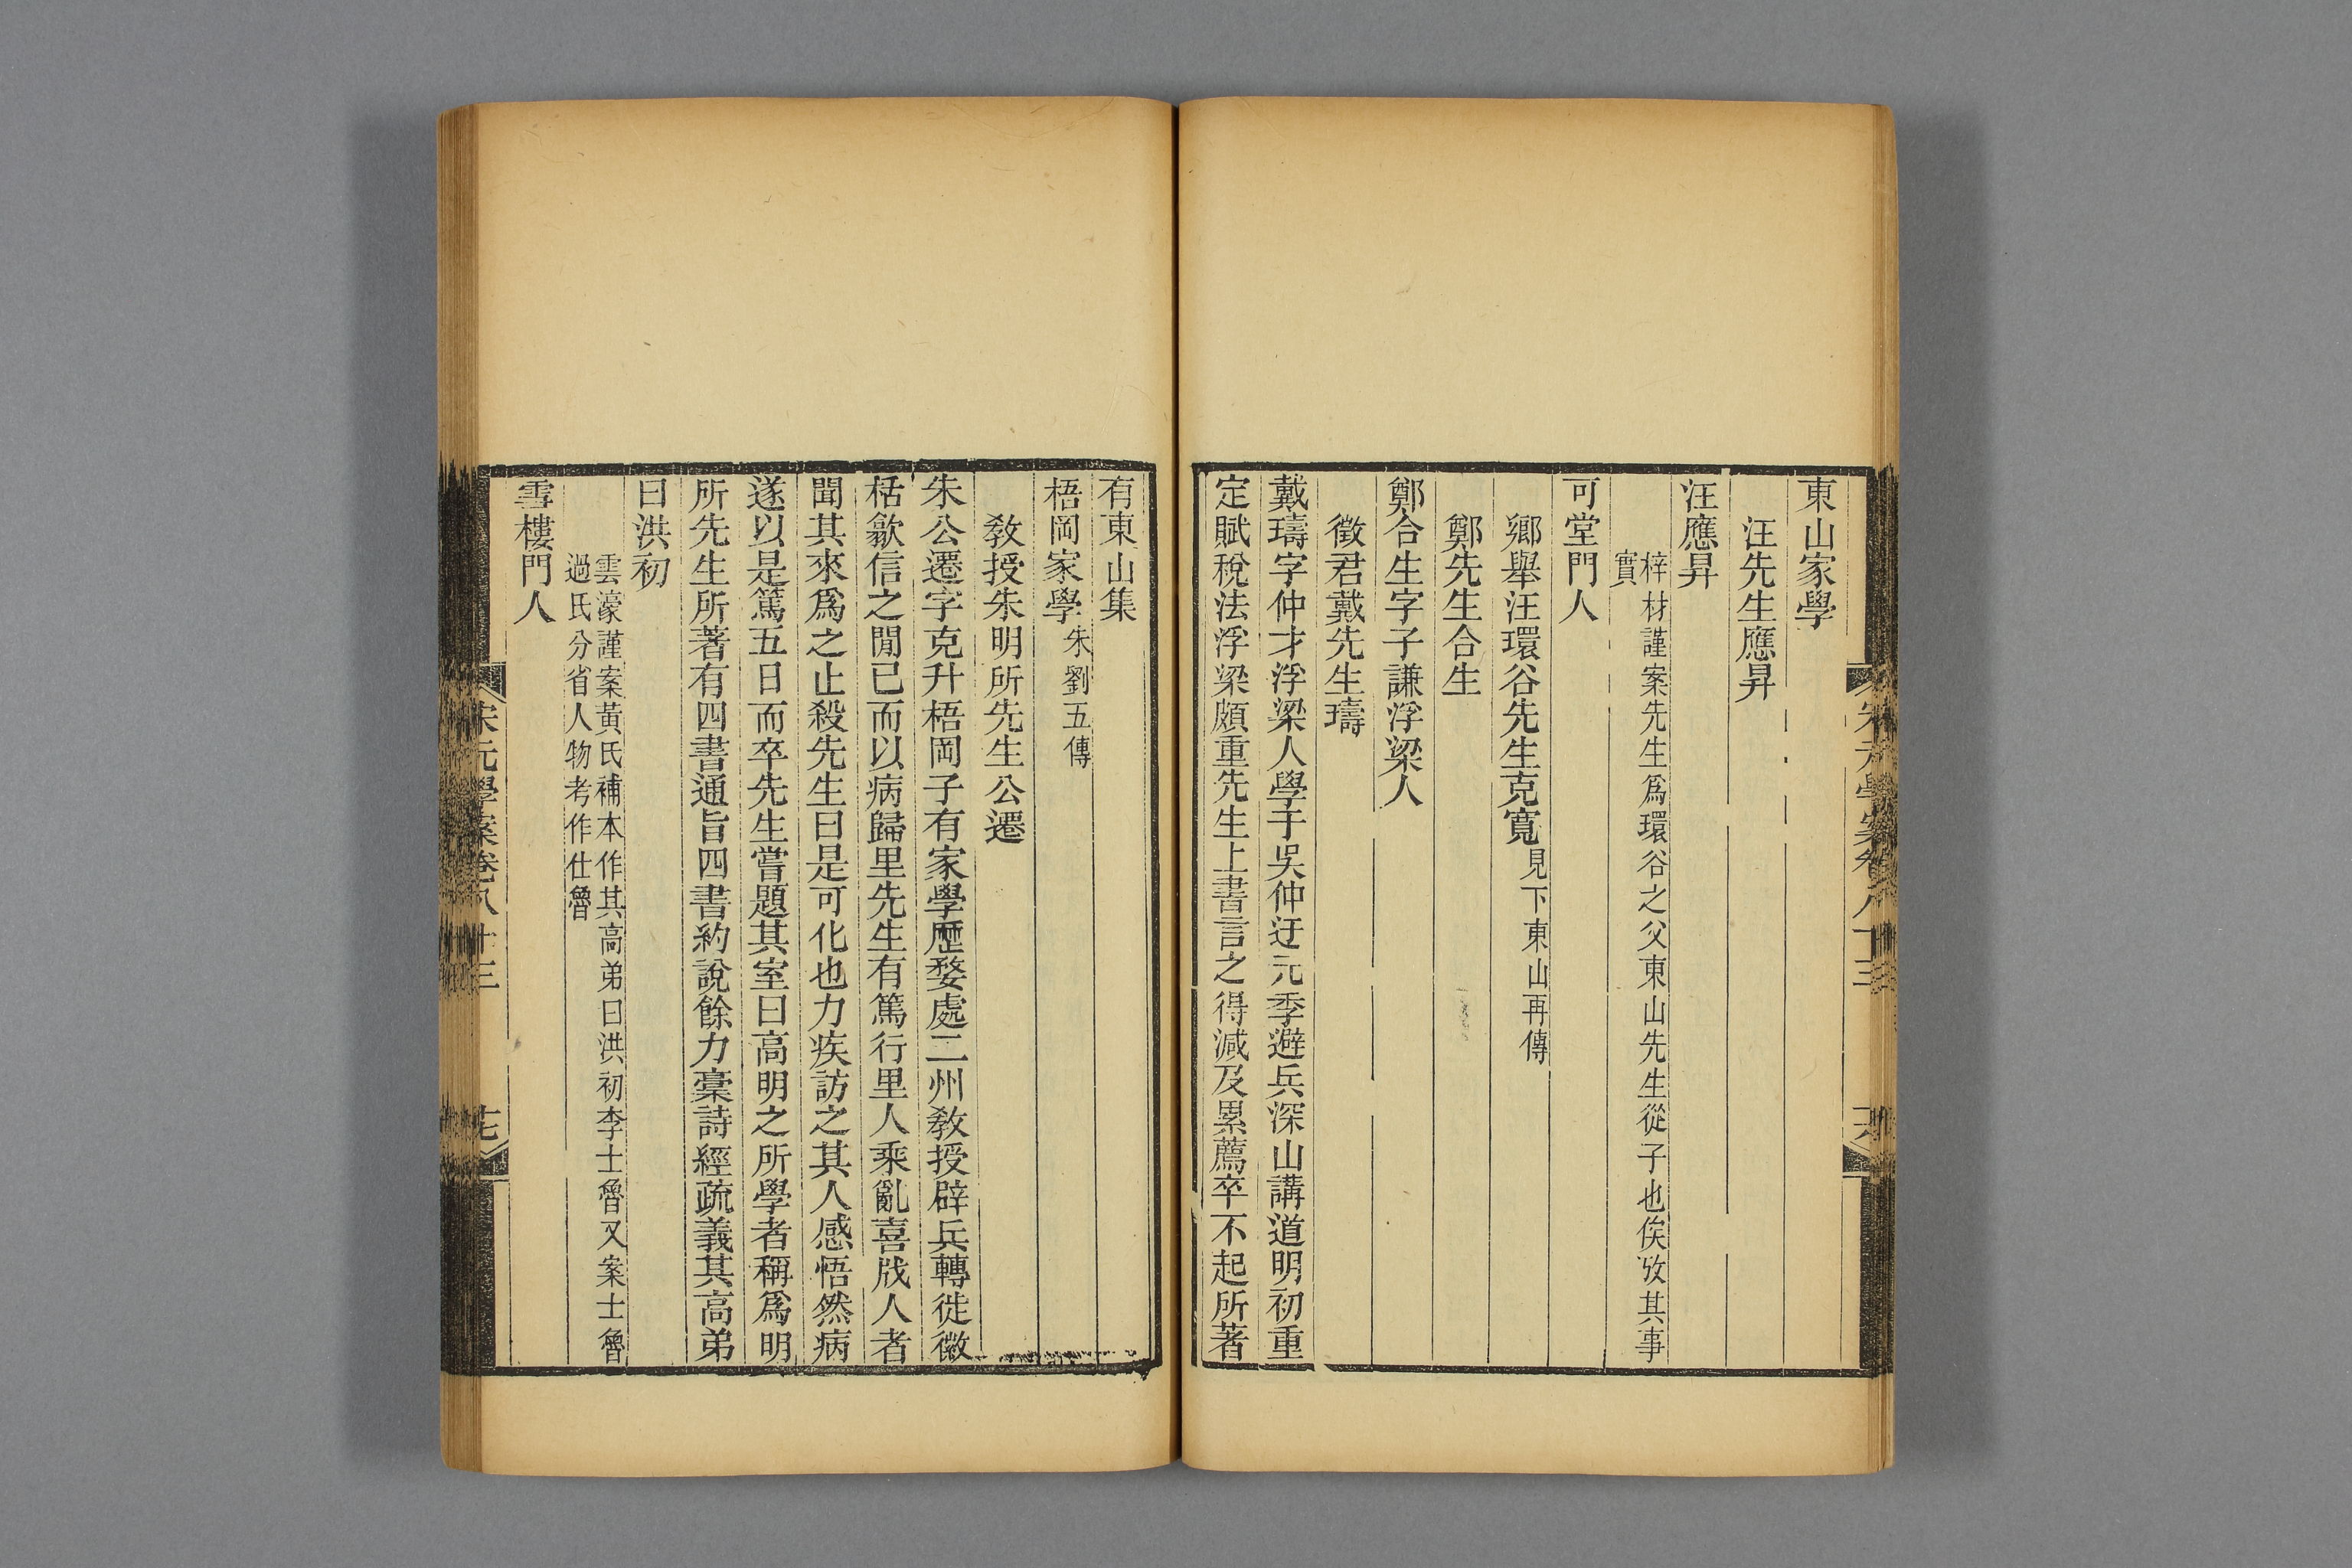 東山家學
汪先生應昇
汪應昇
梓材謹案先生爲環谷之父東山先生從子也俟攷其事
實
可堂門人
鄉舉汪環谷先生克寬見下東山再傳
鄭先生合生
鄭合生字子謙浮梁人
徵君戴先生璹
戴璹字仲才浮梁人學于吳仲迂元季避兵深山講道明初重
定賦稅法浮梁頗重先生上書言之得減及累薦卒不起所著
有東山集
梧岡家學朱劉五傳
教授朱明所先生公遷
朱公遷字克升梧岡子有家學歷婺處二州教授辟兵轉徙徽
栝歙信之閒已而以病歸里先生有篤行里人乘亂喜戕人者
聞其來爲之止殺先生曰是可化也力疾訪之其人感悟然病
遂以是篤五日而卒先生嘗題其室曰高明之所學者稱爲明
所先生所著有四書通旨四書約說餘力稾詩經疏義其高弟
曰洪初
雲濠謹案黃氏補本作其高弟曰洪初李士魯又案士魯
過氏分省人物考作仕魯
雪樓門人
宋元學案卷八十三